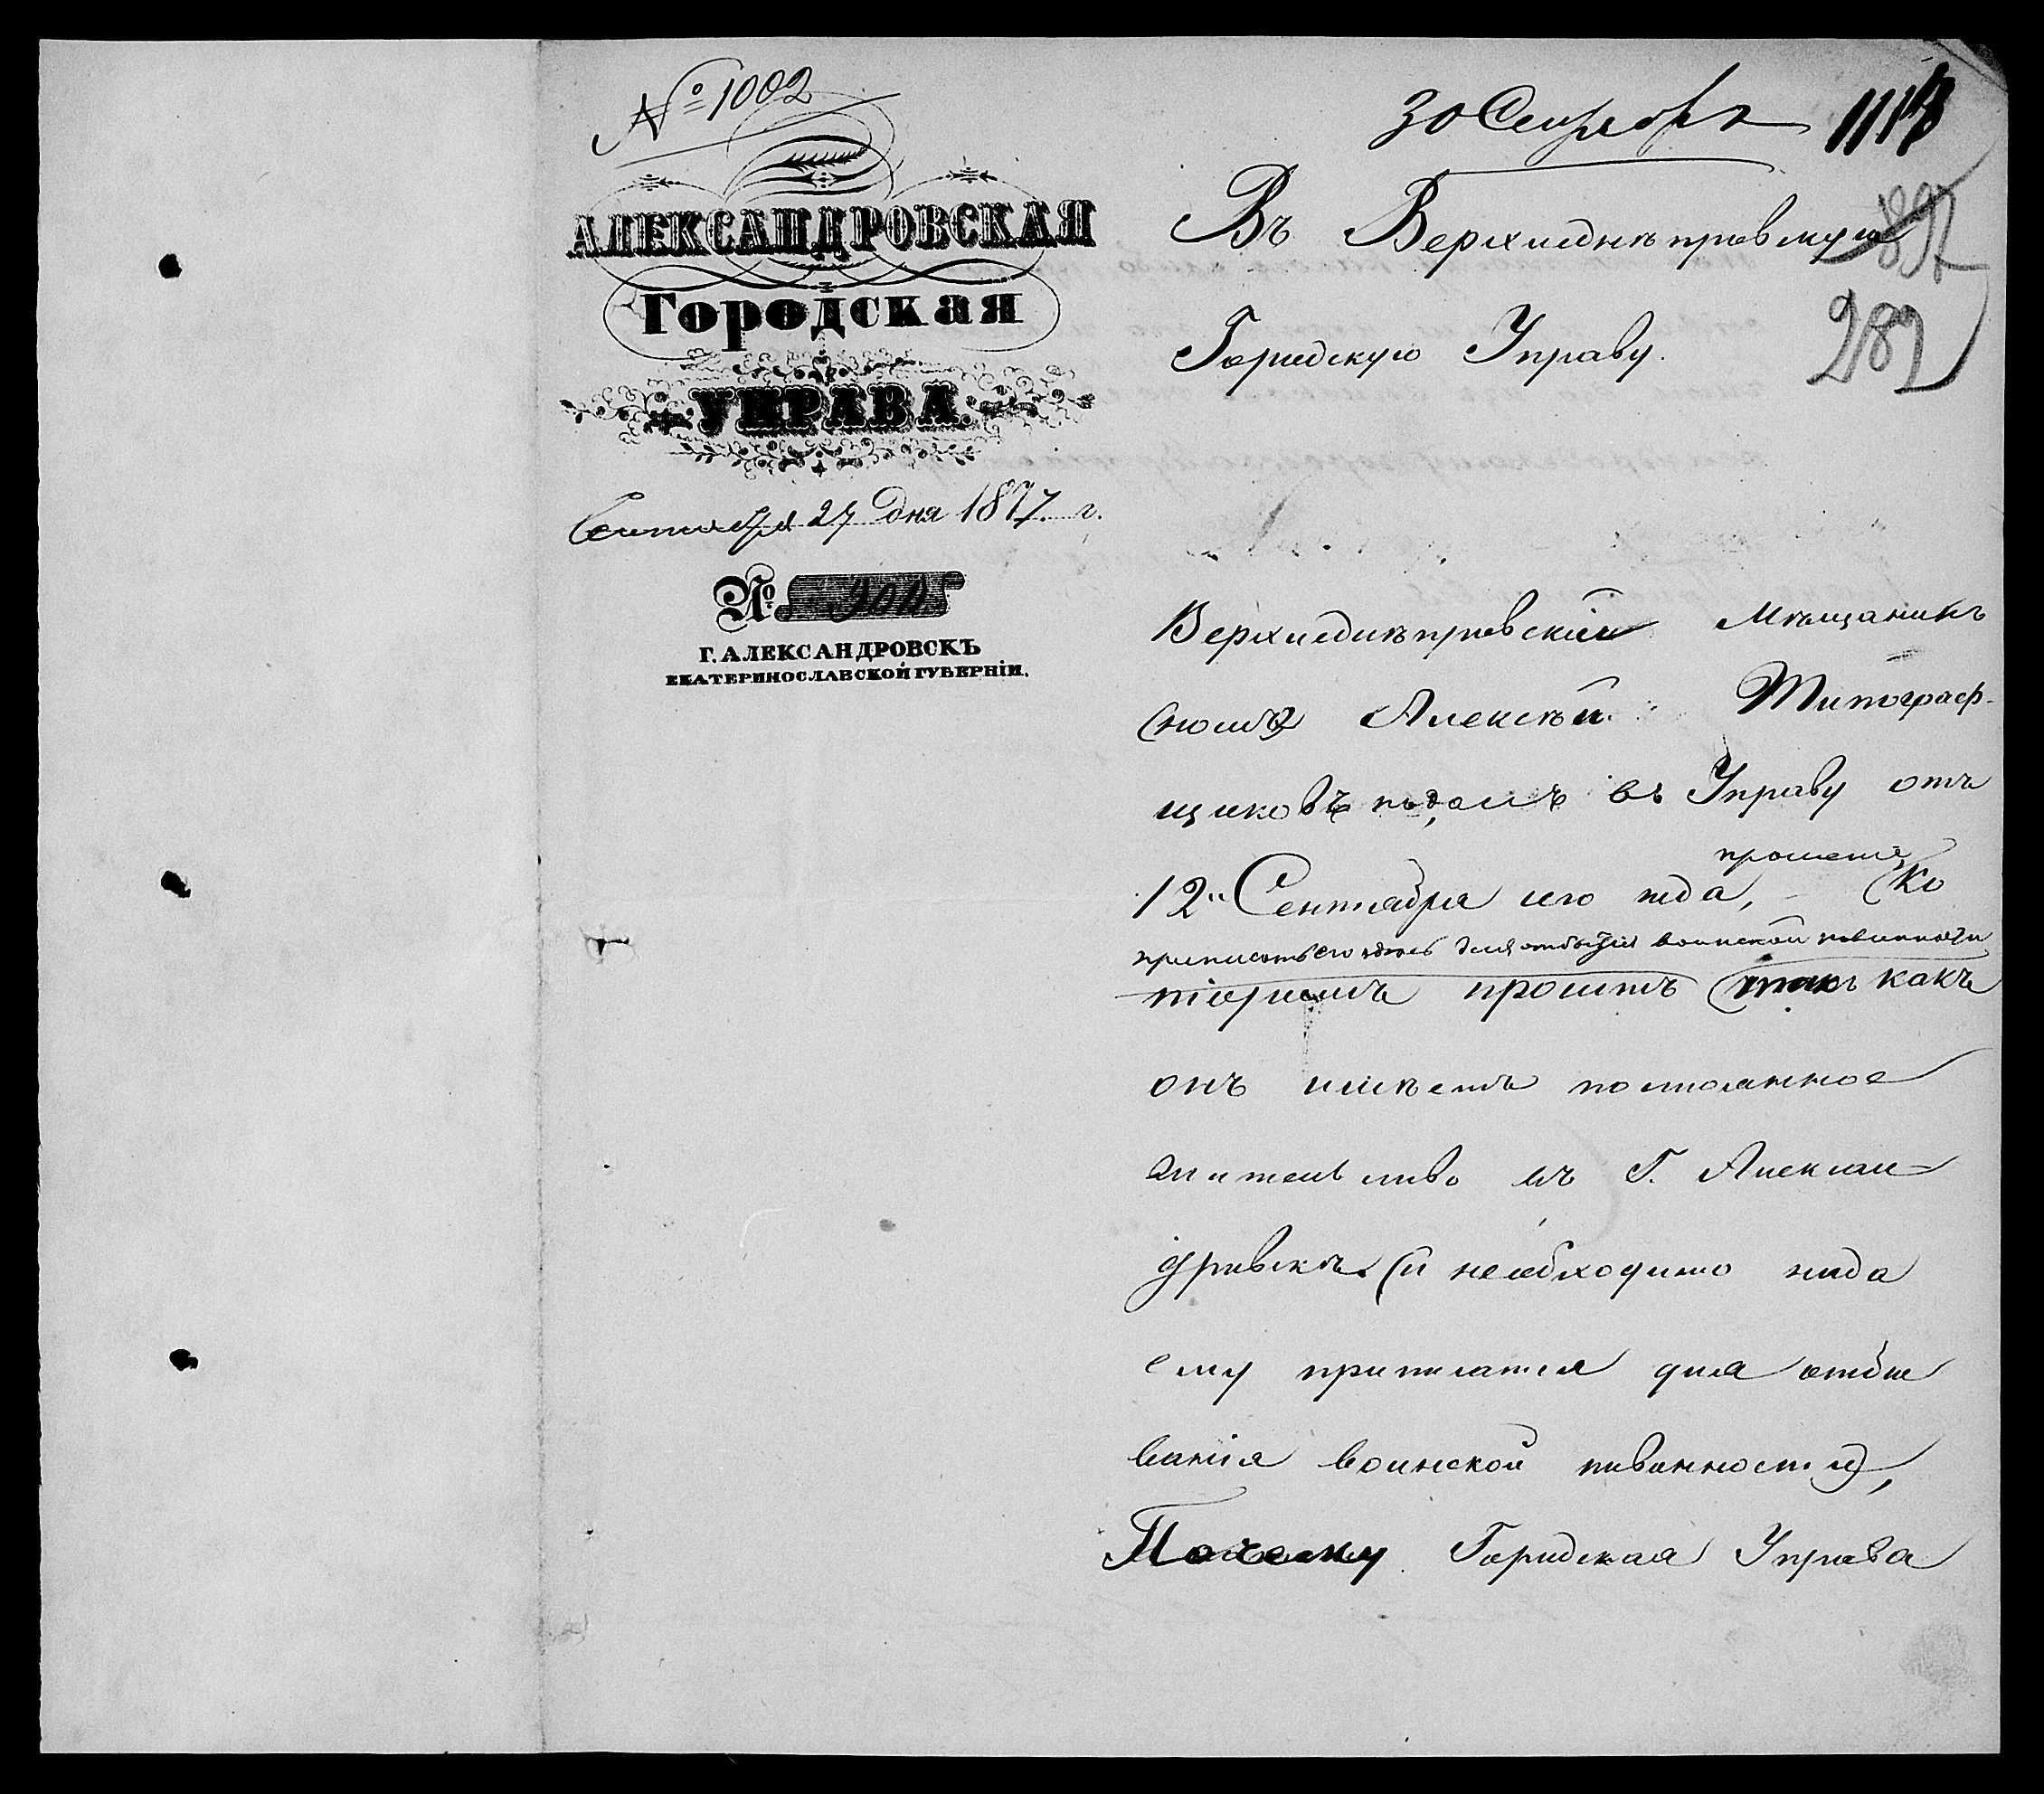 № 1002
АЛЕКСАНДРОВСКАЯ
Городская
УПРАВА.
Сентября 27 дня 1877 г.
№
Г. АЛЕКСАНДРОВСКЪ
ЕКАТЕРИНОСЛАВСКОЙ ГУБЕРНІИ.
30 Сентября
Въ Верхнеднѣпровскую
897
Городскую Управу.
282
Верхнеднѣпровскій Мѣщанинъ
Алексѣй Типограф-
щиковъ подалъ въ Управу отъ
прошеніе
12 Сентября сего года, Ко
приписать его здѣсь для отбытія воинской повинности
торымъ проситъ такъ какъ
онъ имѣетъ постоянное
жительство въ Г. Алексан-
дровскѣ и необходимо надо
ему приписатся для отбы
ванія воинской повинности,
Почему Городская Управа